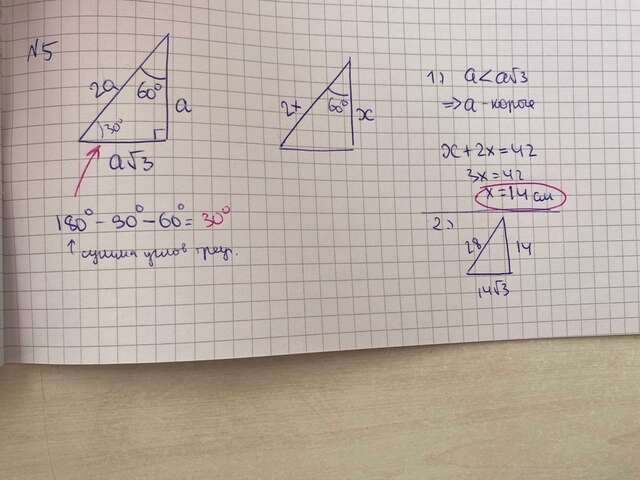 N5
2a
60°
a
30°
a√3
180° - 90° - 60° = 30°
↑ сумма углов треуг.
2x
60°
x
1) a < a√3
=> a - короче
x + 2x = 42
3x = 42
x = 14 см
2.)
28
14
14√3